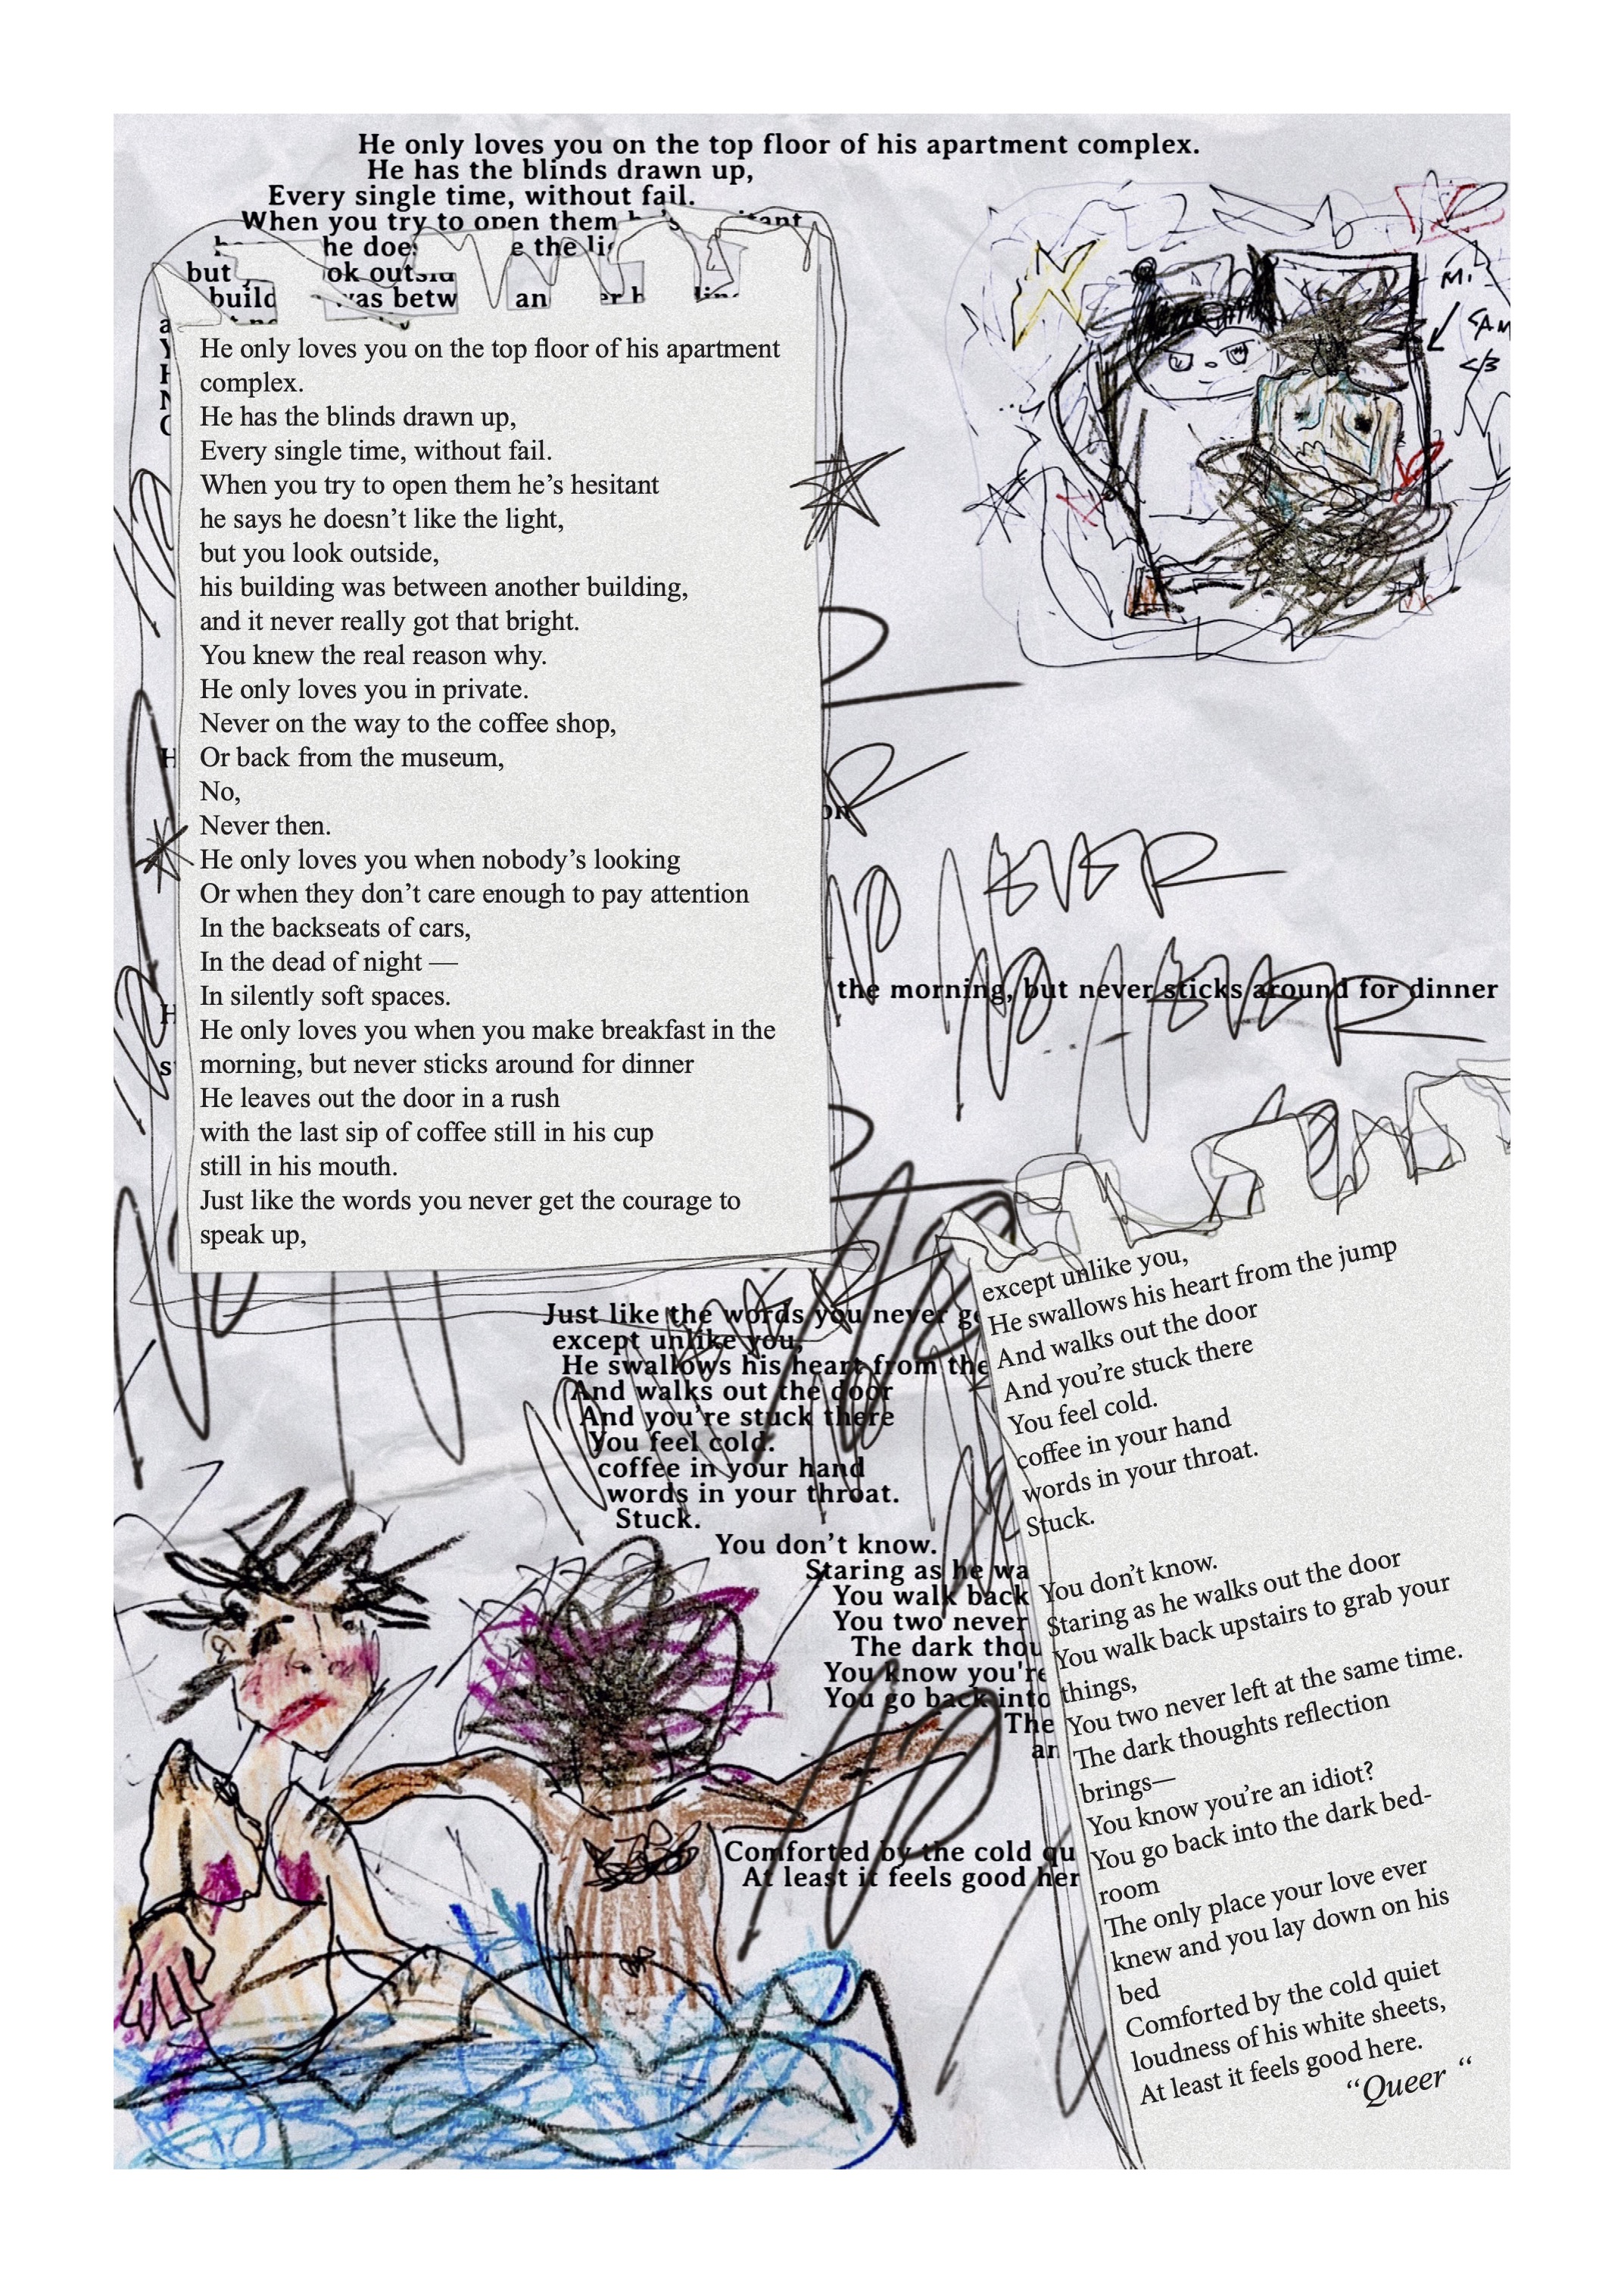 He only loves you on the top floor of his apartment complex.
He has the blinds drawn up,
Every single time, without fail.
When you try to open them
he doe e the
but ok
build was betw an
He only loves you on the top floor of his apartment
complex.
He has the blinds drawn up,
Every single time, without fail.
When you try to open them he’s hesitant
he says he doesn’t like the light,
but you look outside,
his building was between another building,
and it never really got that bright.
You knew the real reason why.
He only loves you in private.
Never on the way to the coffee shop,
Or back from the museum,
No,
Never then.
He only loves you when nobody’s looking
Or when they don’t care enough to pay attention
In the backseats of cars,
In the dead of night —
In silently soft spaces.
He only loves you when you make breakfast in the
morning, but never sticks around for dinner
He leaves out the door in a rush
with the last sip of coffee still in his cup
still in his mouth.
Just like the words you never get the courage to
speak up,
NO NEVER
the morning, but never sticks around for dinner
NO NEVER
Just like the words you never g
except unlike you,
He swallows his heart from the
And walks out the door
And you’re stuck there
You feel cold.
coffee in your hand
words in your throat.
Stuck.
You don’t know.
Staring as he wa
You walk back
You two never
The dark thou
You know you're
You go back into
The
an
Comforted by the cold qu
At least it feels good her
except unlike you,
He swallows his heart from the jump
And walks out the door
And you’re stuck there
You feel cold.
coffee in your hand
words in your throat.
Stuck.
You don’t know.
Staring as he walks out the door
You walk back upstairs to grab your
things,
You two never left at the same time.
The dark thoughts reflection
brings—
You know you’re an idiot?
You go back into the dark bed-
room
The only place your love ever
knew and you lay down on his
bed
Comforted by the cold quiet
loudness of his white sheets,
At least it feels good here.
“Queer “